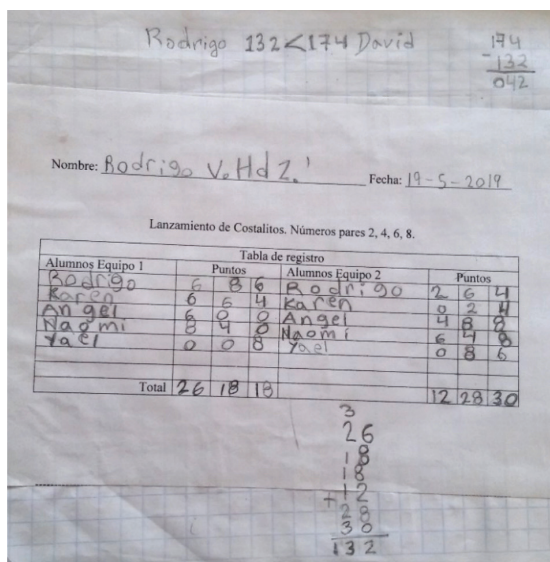 Rodrigo 132<174 David
174
-132
042
Nombre: Rodrigo V. Hdz.
Fecha: 19-5-2019
Lanzamiento de Costalitos. Números pares 2, 4, 6, 8.
Tabla de registro
Alumnos Equipo 1 Puntos Alumnos Equipo 2 Puntos
Rodrigo 6 8 6 Rodrigo 2 6 4
Karen 6 6 4 Karen 0 2 4
Angel 6 0 0 Angel 4 8 8
Naomi 8 4 0 Naomi 6 4 8
Yael 0 0 8 Yael 0 8 6
Total 26 18 18 12 28 30
3
26
18
18
+12
28
30
132